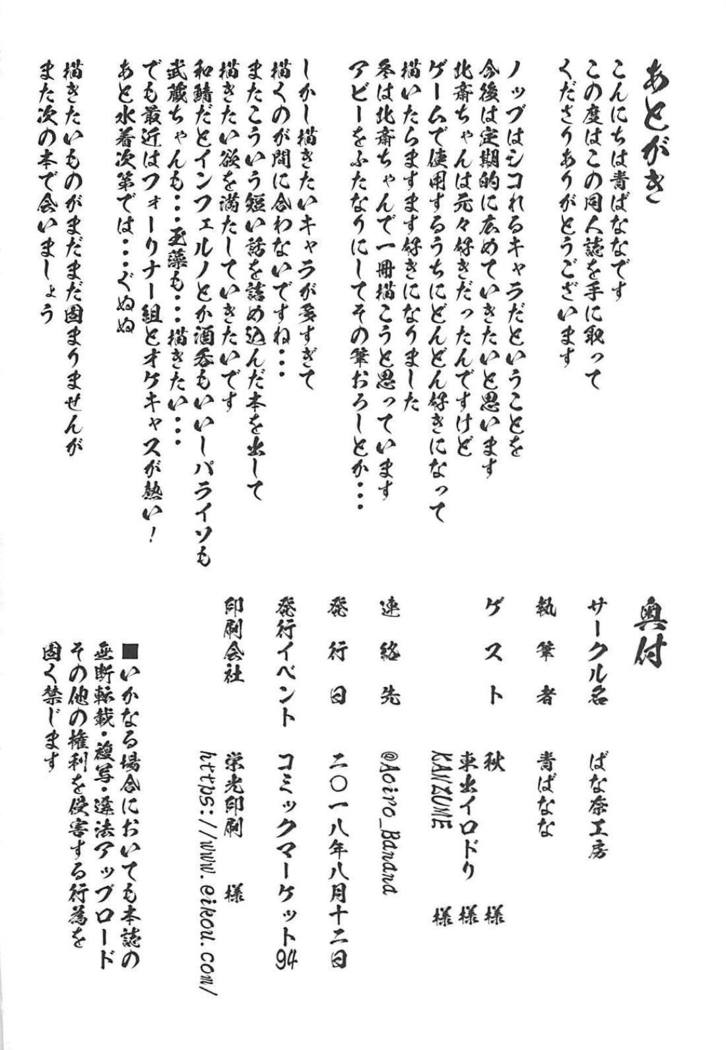 あとがき
こんにちは青ばななです
この度はこの同人誌を手に取って
くださりありがとうございます
ノッブはシコれるキャラだということを
今後は定期的に広めていきたいと思います
北斎ちゃんは元々好きだったんですけど
ゲームで使用するうちにどんどん好きになって
描いたらますます好きになりました
冬は北斎ちゃんで一冊描こうと思っています
アビーをふたなりにしてその筆おろしとか・・・
しかし描きたいキャラが多すぎて
描くのが間に合わないですね・・・
またこういう短い話を詰め込んだ本を出して
描きたい欲を満たしていきたいです
和鯖だとインフェルノとか酒呑もいいしパライソも
武蔵ちゃんも・・・玉藻も・・・描きたい・・・
でも最近はフォーリナー組とオケキャスが熱い！
あと水着次第では・・・ぐぬぬ
描きたいものがまだまだ固まりませんが
また次の本で会いましょう
奥付
サークル名 ばな奈工房
執筆者 青ばなな
ゲスト 秋 様
車出イロドリ 様
KANZUME 様
連絡先 @Aoiro_Banana
発行日 二〇一八年八月十二日
発行イベント コミックマーケット94
印刷会社 栄光印刷 様
https://www.eikou.com/
■いかなる場合においても本誌の
無断転載・複写・違法アップロード
その他の権利を侵害する行為を
固く禁じます